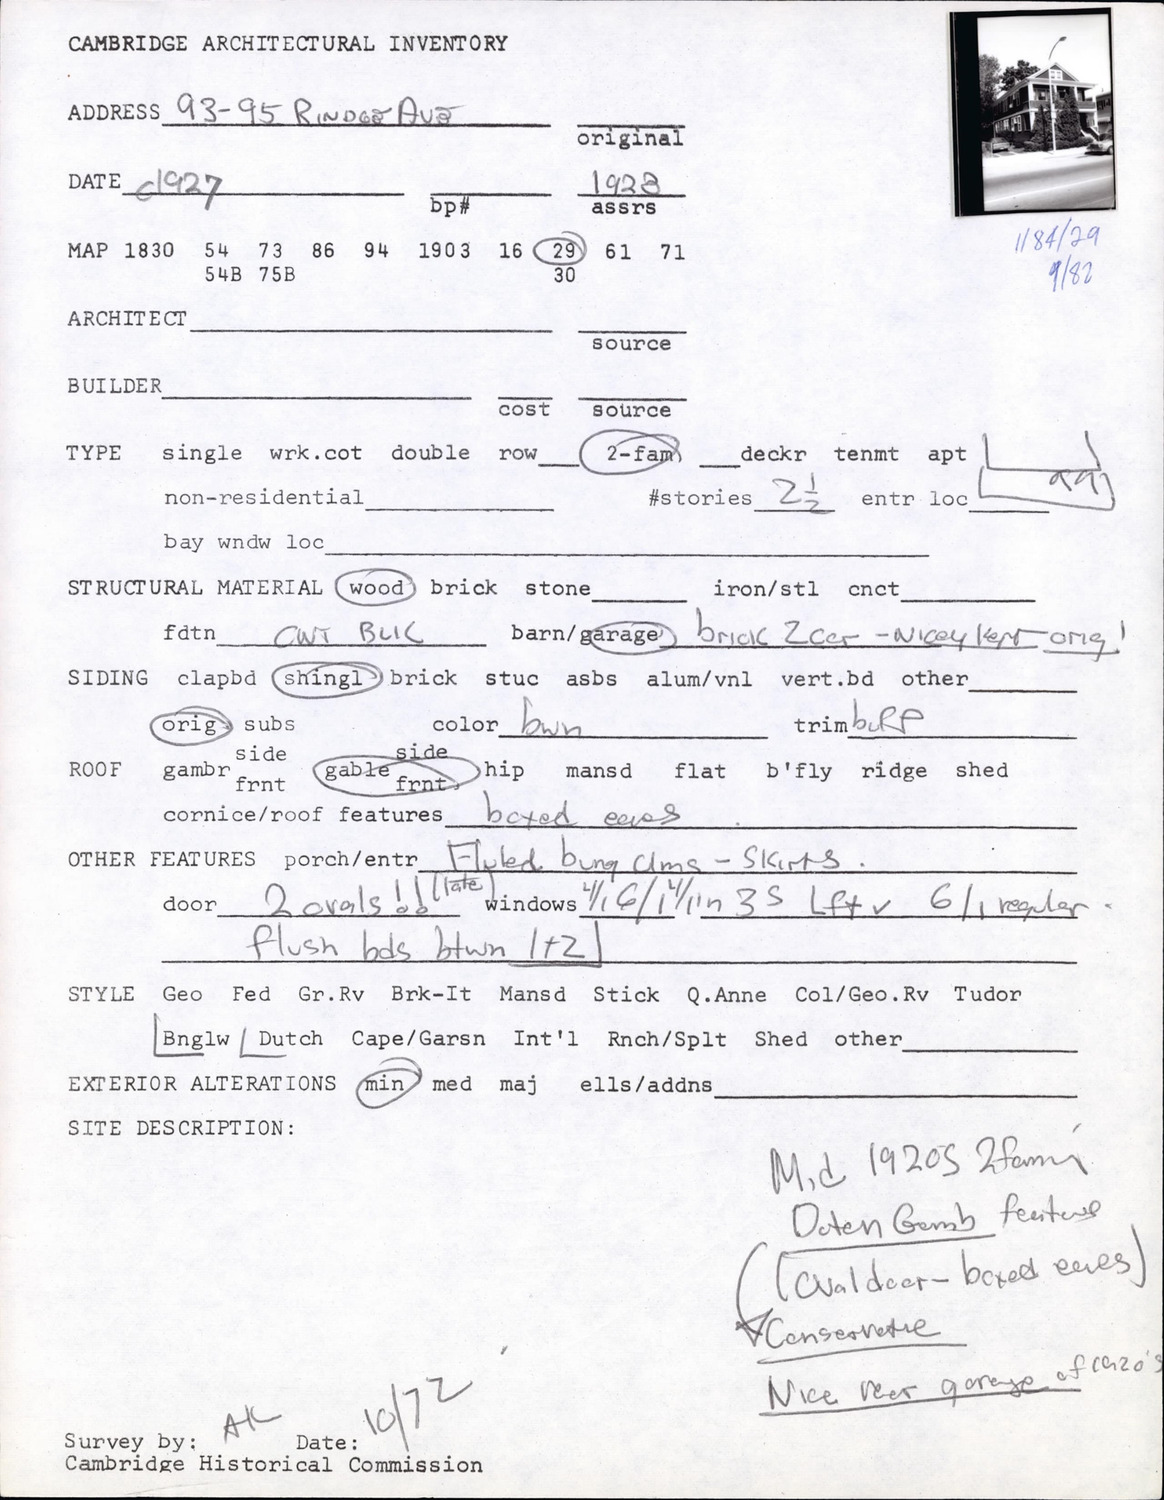 CAMBRIDGE ARCHITECTURAL INVENTORY
ADDRESS 93-95 RINDGE AVE
original
DATE c1927 1928
bp# assrs
1/84/29
9/82
MAP 1830 54 73 86 94 1903 16 29 61 71
54B 75B 30
ARCHITECT
source
BUILDER
cost source
TYPE single wrk.cot double row 2-fam deckr tenmt apt
non-residential #stories 2½ entr loc
bay wndw loc
STRUCTURAL MATERIAL wood brick stone iron/stl cnct
fdtn CNT BLK barn/garage brick 2 car - Nicely kept orig!
SIDING clapbd shingl brick stuc asbs alum/vnl vert.bd other
orig subs color bwn trim
side side
ROOF gambr gable hip mansd flat b'fly ridge shed
frnt frnt
cornice/roof features boxed eaves
OTHER FEATURES porch/entr bung clms - Skirts.
door 2 ovals!! (late) windows 4/1 6/1 4/1 in 3s Lft v 6/1 regular.
flush bds btwn 1+2
STYLE Geo Fed Gr.Rv Brk-It Mansd Stick Q.Anne Col/Geo.Rv Tudor
Bnglw Dutch Cape/Garsn Int'l Rnch/Splt Shed other
EXTERIOR ALTERATIONS min med maj ells/addns
SITE DESCRIPTION:
Mid 1920s 2fami
Gamb feature
(Oval door - boxed eaves)
Conservative
Nice rear garage of 1920's
Survey by: AK Date: 10/72
Cambridge Historical Commission